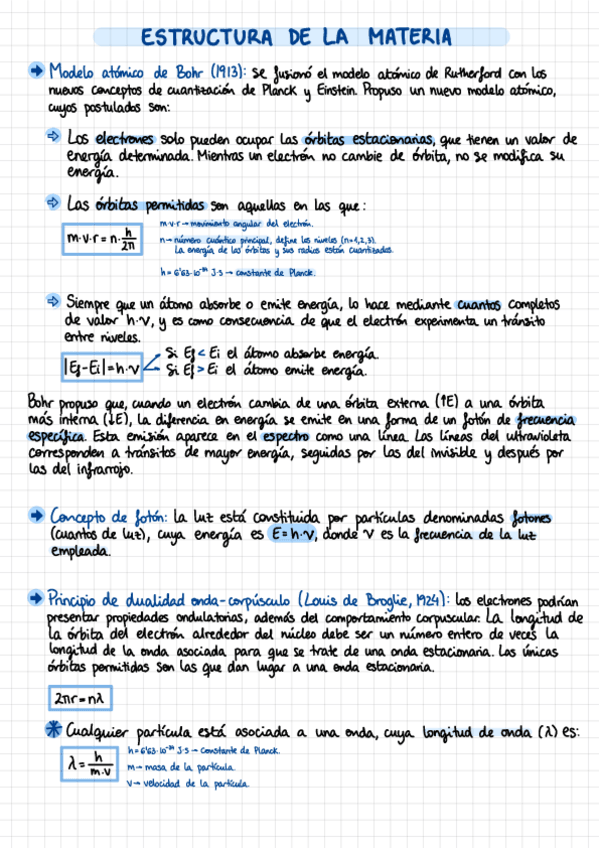 ESTRUCTURA DE LA MATERIA
→ Modelo atómico de Bohr (1913): se fusionó el modelo atómico de Rutherford con los
nuevos conceptos de cuantización de Planck y Einstein. Propuso un nuevo modelo atómico,
cuyos postulados son:
⇨ Los electrones solo pueden ocupar las órbitas estacionarias, que tienen un valor de
energía determinada. Mientras un electrón no cambie de órbita, no se modifica su
energía.
⇨ Las órbitas permitidas son aquellas en las que:
m·v·r = n·h/2π
m·v·r → movimiento angular del electrón.
n → número cuántico principal, define los niveles (n=1,2,3).
La energía de las órbitas y sus radios están cuantizados.
h = 6'63·10⁻³⁴ J·s → constante de Planck.
⇨ Siempre que un átomo absorbe o emite energía, lo hace mediante cuantos completos
de valor h·ν, y es como consecuencia de que el electrón experimenta un tránsito
entre niveles.
|Ef-Ei|=h·ν
Si Ef < Ei el átomo absorbe energía.
Si Ef > Ei el átomo emite energía.
Bohr propuso que, cuando un electrón cambia de una órbita externa (↑E) a una órbita
más interna (↓E), la diferencia en energía se emite en una forma de un fotón de frecuencia
específica. Esta emisión aparece en el espectro como una línea. Las líneas del ultravioleta
corresponden a tránsitos de mayor energía, seguidas por las del invisible y después por
las del infrarrojo.
→ Concepto de fotón: la luz está constituida por partículas denominadas fotones
(cuantos de luz), cuya energía es E=h·ν, donde ν es la frecuencia de la luz
empleada.
→ Principio de dualidad onda-corpúsculo (Louis de Broglie, 1924): los electrones podrían
presentar propiedades ondulatorias, además del comportamiento corpuscular. La longitud de
la órbita del electrón alrededor del núcleo debe ser un número entero de veces la
longitud de la onda asociada para que se trate de una onda estacionaria. Las únicas
órbitas permitidas son las que dan lugar a una onda estacionaria.
2πr=nλ
* Cualquier partícula está asociada a una onda, cuya longitud de onda (λ) es:
λ = h/m·v
h = 6'63·10⁻³⁴ J·s → constante de Planck.
m → masa de la partícula.
v → velocidad de la partícula.